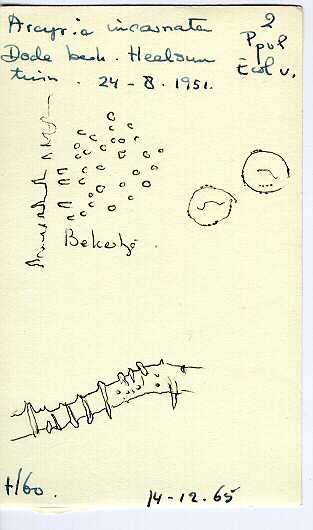 Arcyria incarnata
Dode berk. Heelsum
tuin. 24 - 8. 1951.
2
P pul
Ecol v.
Bekertje.
t/60.
14-12.65